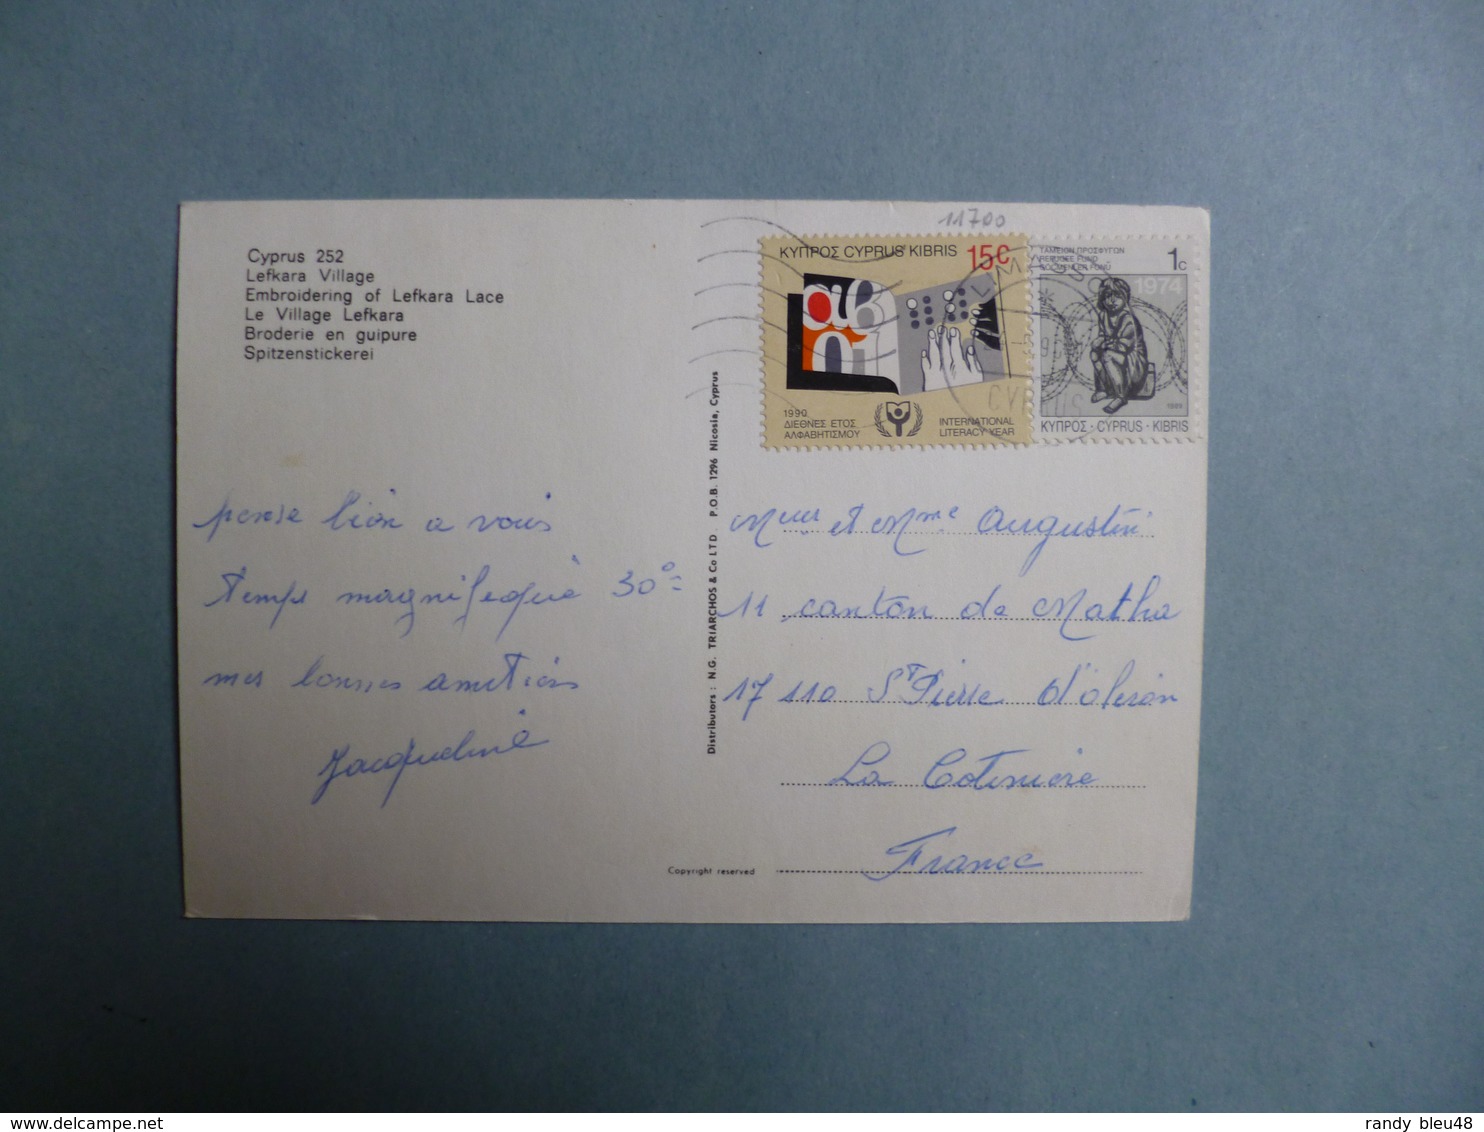 Cyprus 252
Lefkara Village
Embroidering of Lefkara Lace
Le Village Lefkara
Broderie en guipure
Spitzenstickerei
11700
ΚΥΠΡΟΣ CYPRUS KIBRIS 15c
1990
ΔΙΕΘΝΕΣ ΕΤΟΣ
ΑΛΦΑΒΗΤΙΣΜΟΥ
INTERNATIONAL
LITERACY YEAR
ΤΑΜΕΙΟΝ ΠΡΟΣΦΥΓΩΝ
REFUGEE FUND
GÖÇMENLER FONU
1c
1974
1989
ΚΥΠΡΟΣ · CYPRUS · KIBRIS
CYPRUS
pense bien a vous
temps magnifique 30°
mes bonnes amitiés
Jacqueline
Distributors : N.G. TRIARCHOS & Co LTD P.O.B. 1296 Nicosia, Cyprus
Meur et Mme Augustin
11 canton de Matha
17 110 St Pierre d'oleron
La Cotinière
France
Copyright reserved
randy bleu48
www.delcampe.net